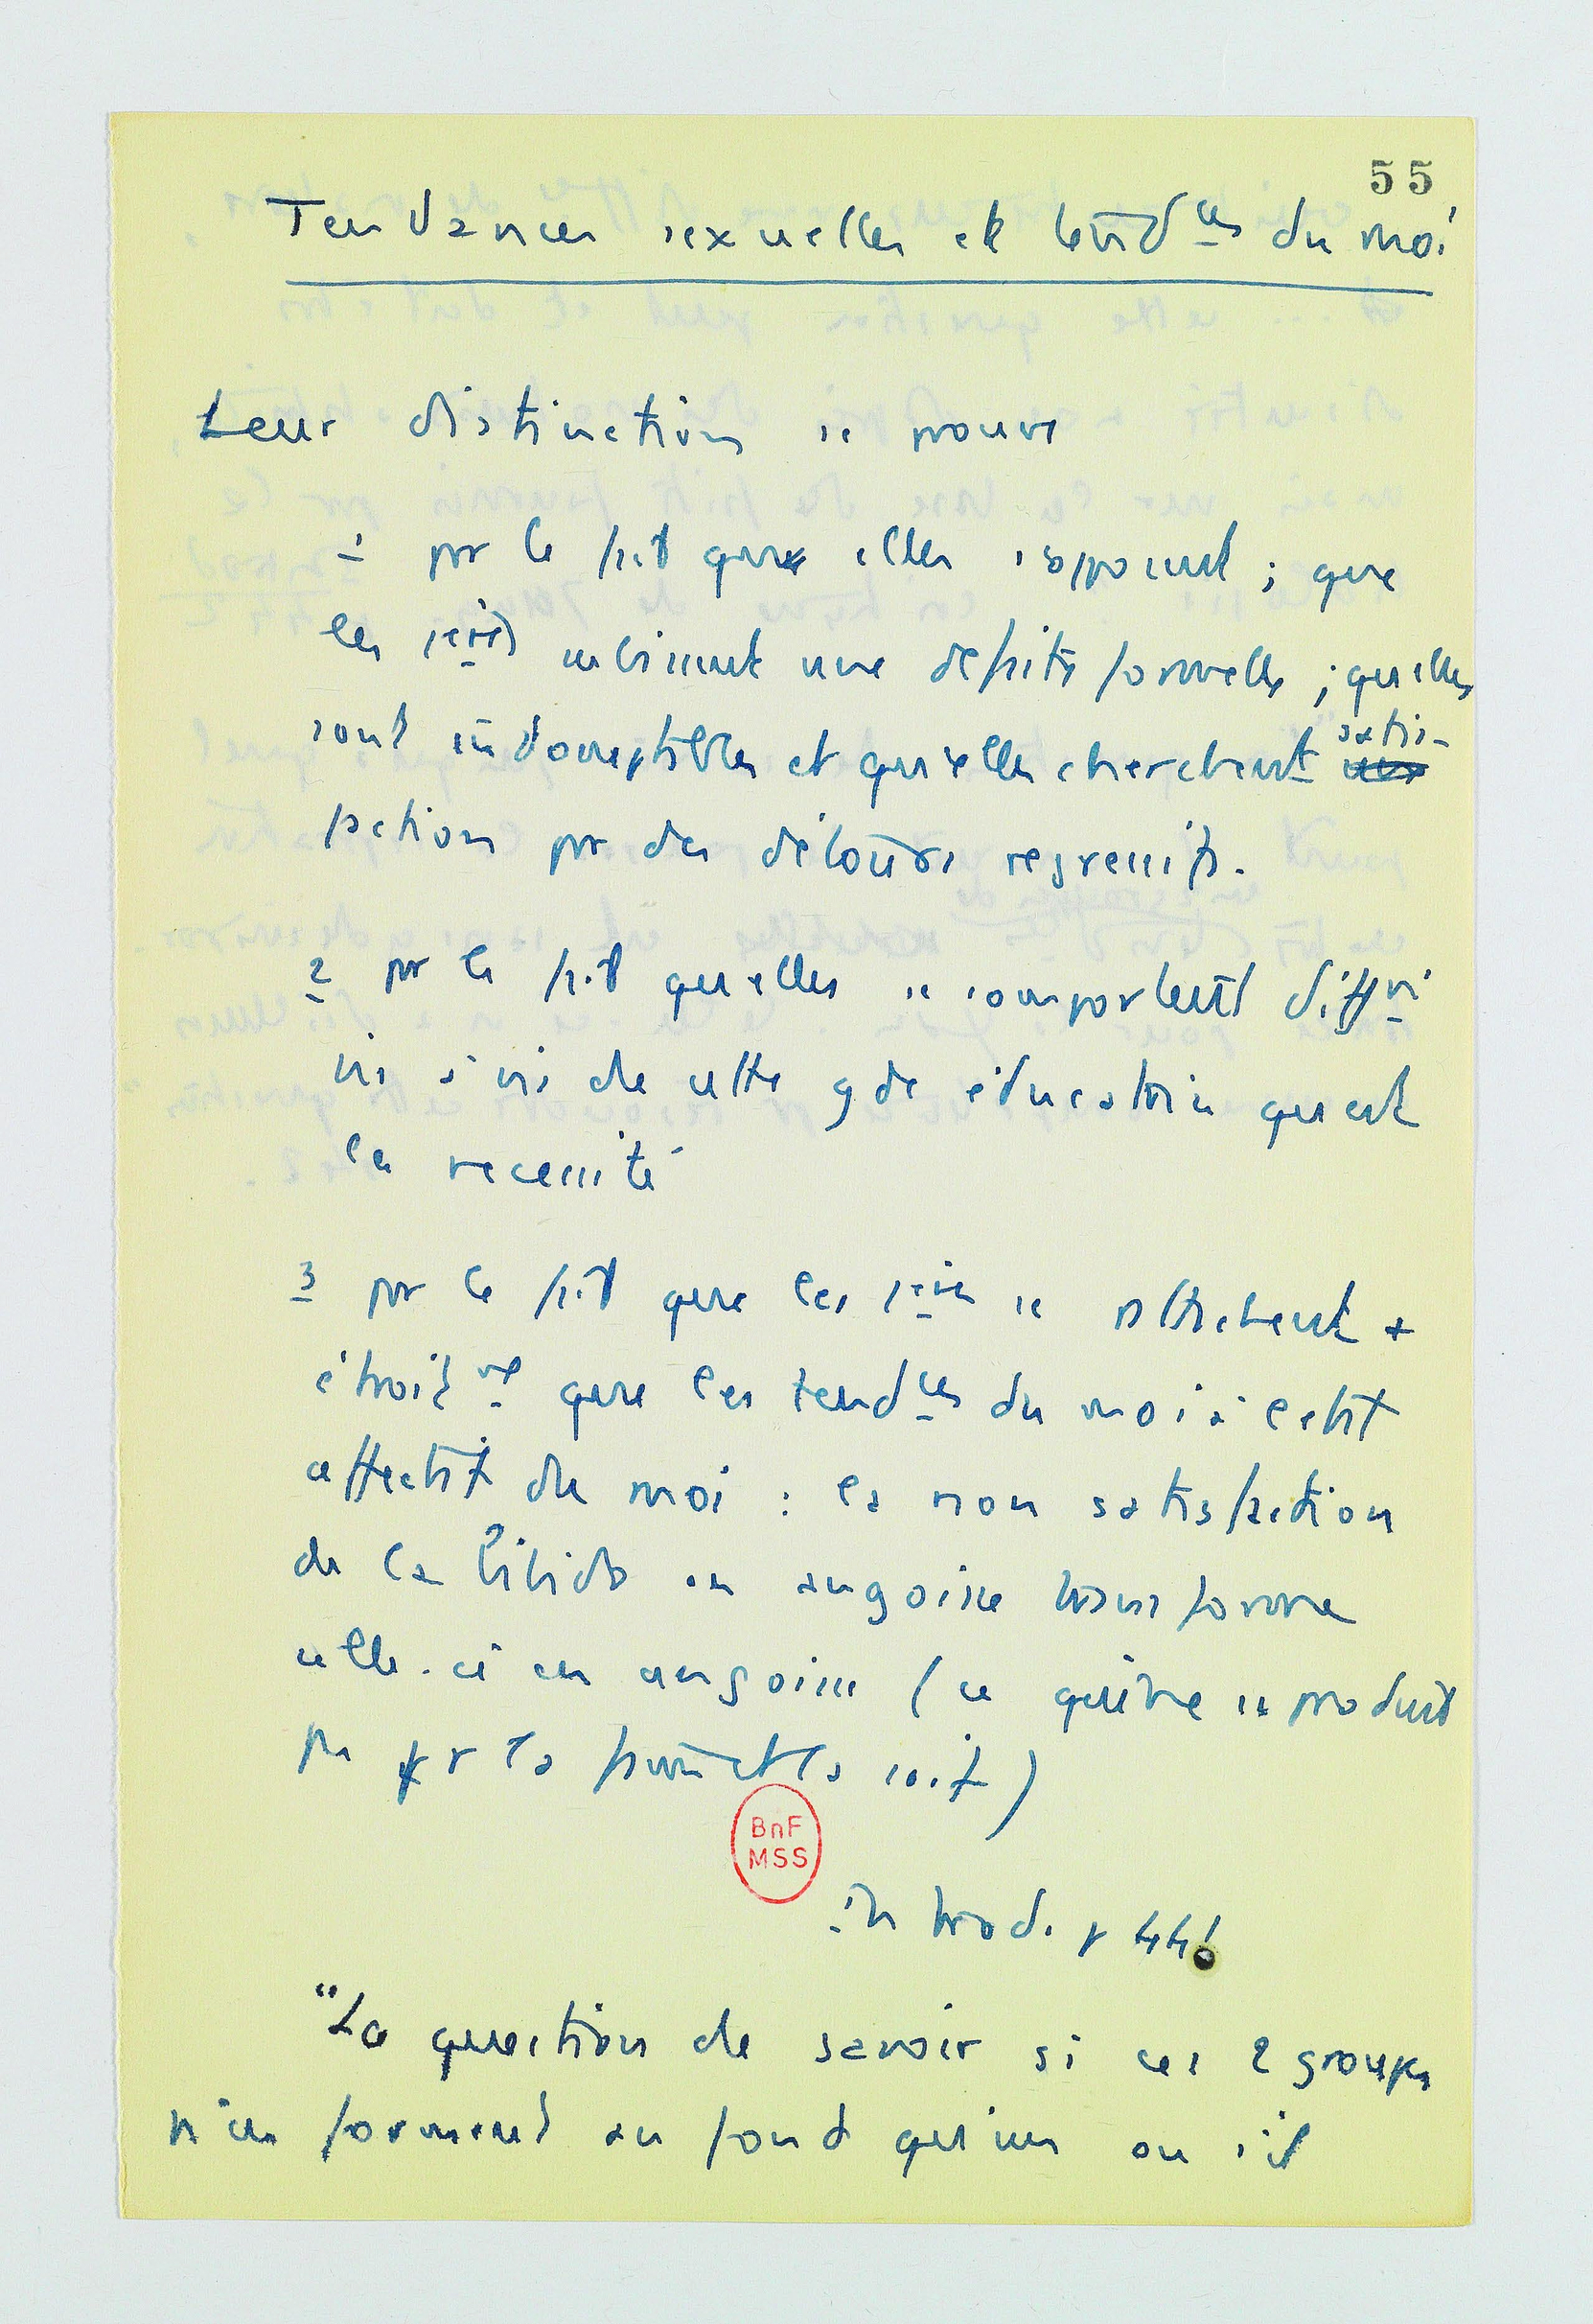 55
Tendances sexuelles et tendces du moi
Leur distinction se prouve
1 par le fait qu'elles s'opposent ; que
les 1ères subissent une défaite formelle ; qu'elles
sont indomptables et qu'elles cherchent satis-
faction par des détours régressifs.
2 par le fait qu'elles se comportent difft
vis à vis de cette gde éducatrice qu'est
la nécessité
3 par le fait que les 1ères se rattachent +
étroitmt que les tendces du moi à l'état
affectif du moi : la non satisfaction
de la libido en angoisse transforme
celle-ci en angoisse (ce qui ne se produit
pas pr la faim et la soif)
in Introd. p 441
"La question de savoir si ces 2 groupes
n'en forment au fond qu'un ou s'il
BnF
MSS